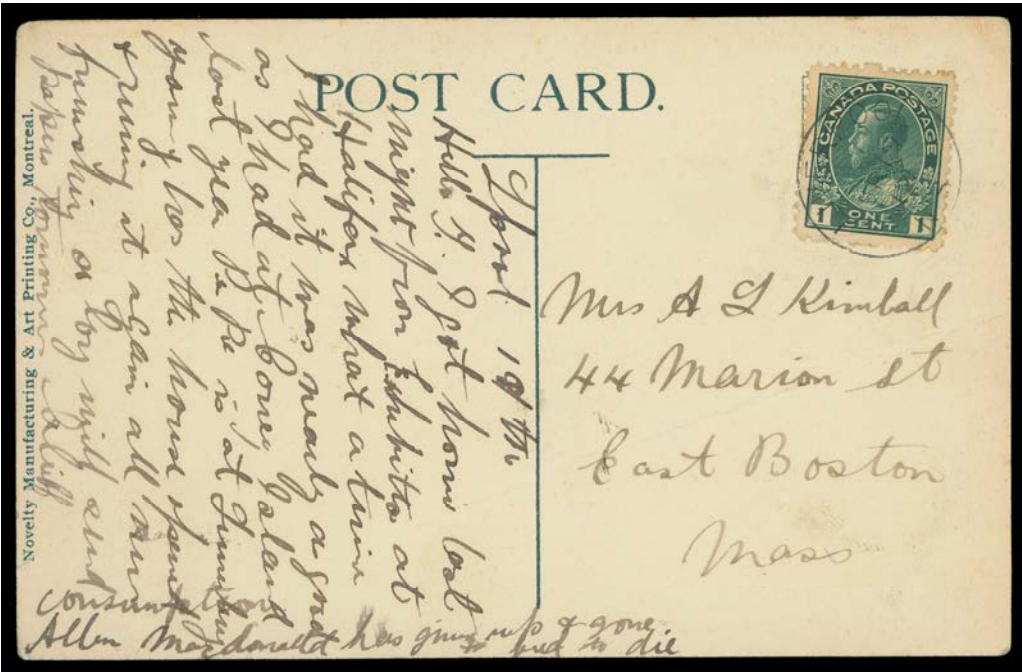 POST CARD.
CANADA POSTAGE
1 ONE CENT 1
Novelty Manufacturing & Art Printing Co., Montreal.
April
Hello got home last
night from at
Halifax what a time
I had it was nearly a good
as I had at Coney Island
lost year is at
young has the house open
& runing it again all
a boy will send
papers
consumption
Allen Macdonald has given up & gone
to bed to die
Mrs A L Kimball
44 Marion St
East Boston
Mass